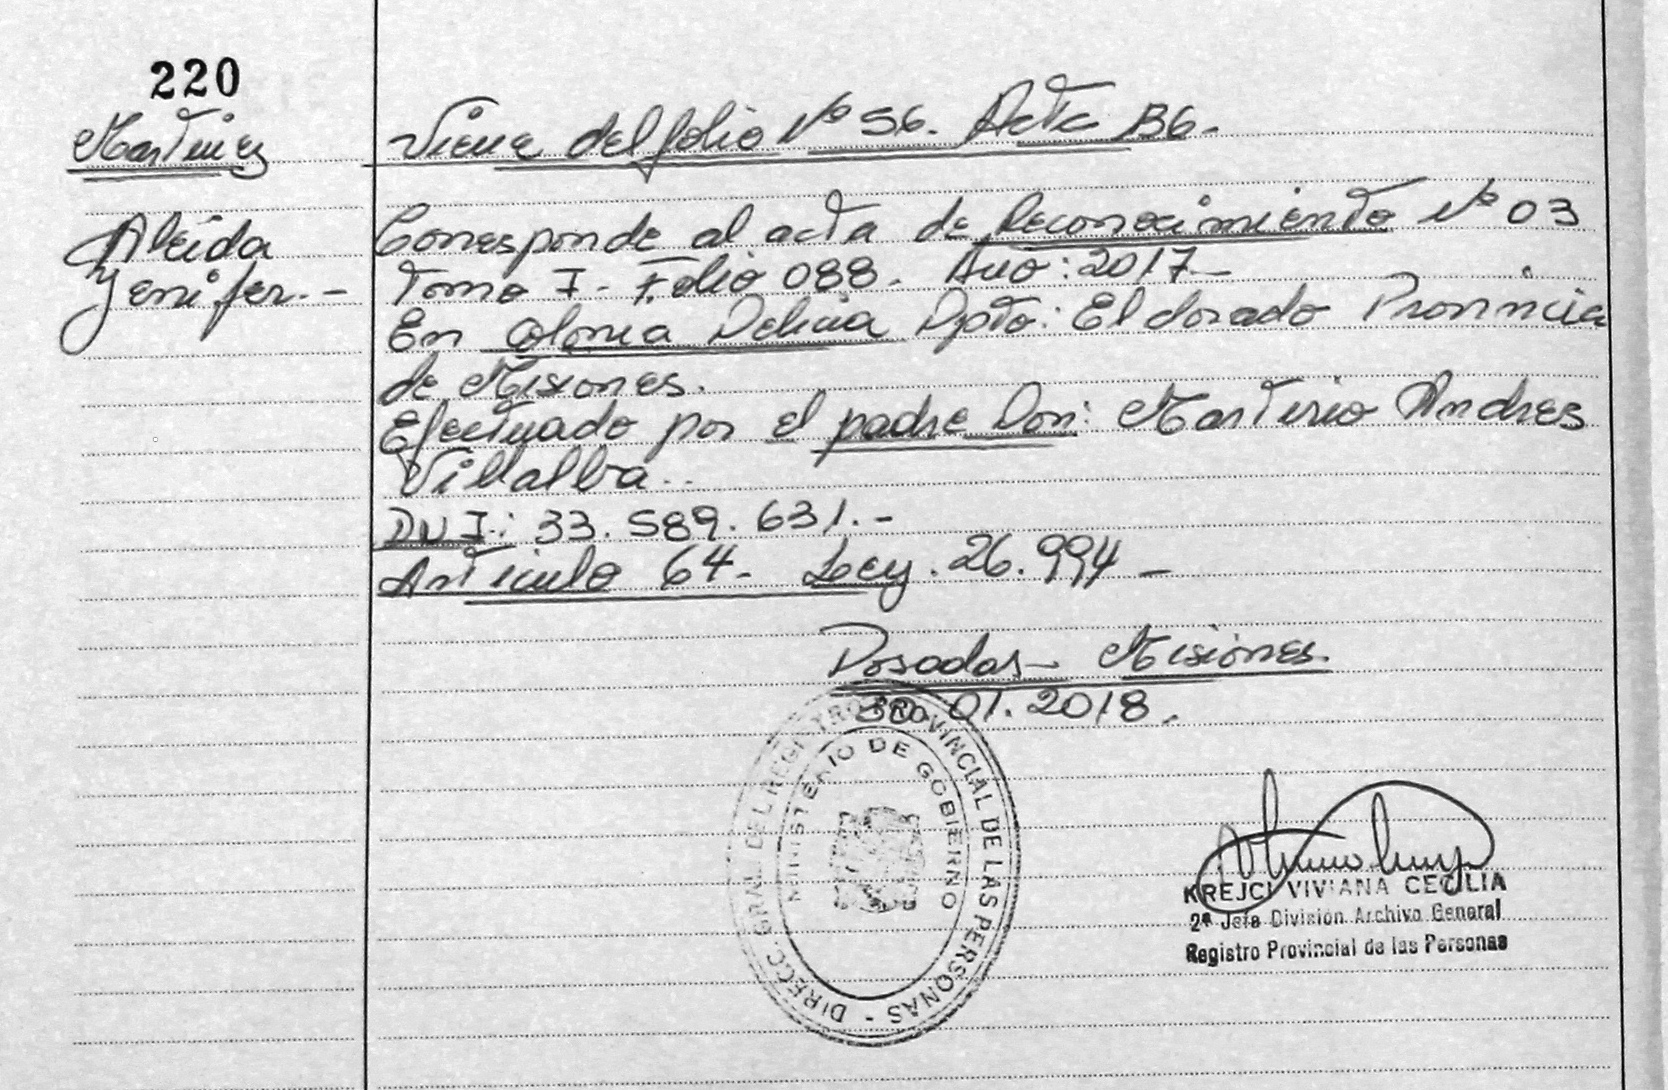 220
Martinez
Aleida
Yenifer.-
Viene del folio Nº 56. Acta B6.
Corresponde al acta de Reconocimiento Nº 03
Tomo I - Folio 088. Año: 2017-
En Colonia Delicia Dpto: Eldorado Provincia
de Misiones.
Efectuado por el padre Don: Martirio Andres
Villalba..
DNI: 33.589.631.-
Articulo 64- Ley. 26.994-
Posadas- Misiones.
30.01.2018.
DIRECC. GRAL. DEL REGISTRO PROVINCIAL DE LAS PERSONAS -
MINISTERIO DE GOBIERNO
KREJCI VIVIANA CECILIA
2ª Jefa División Archivo General
Registro Provincial de las Personas